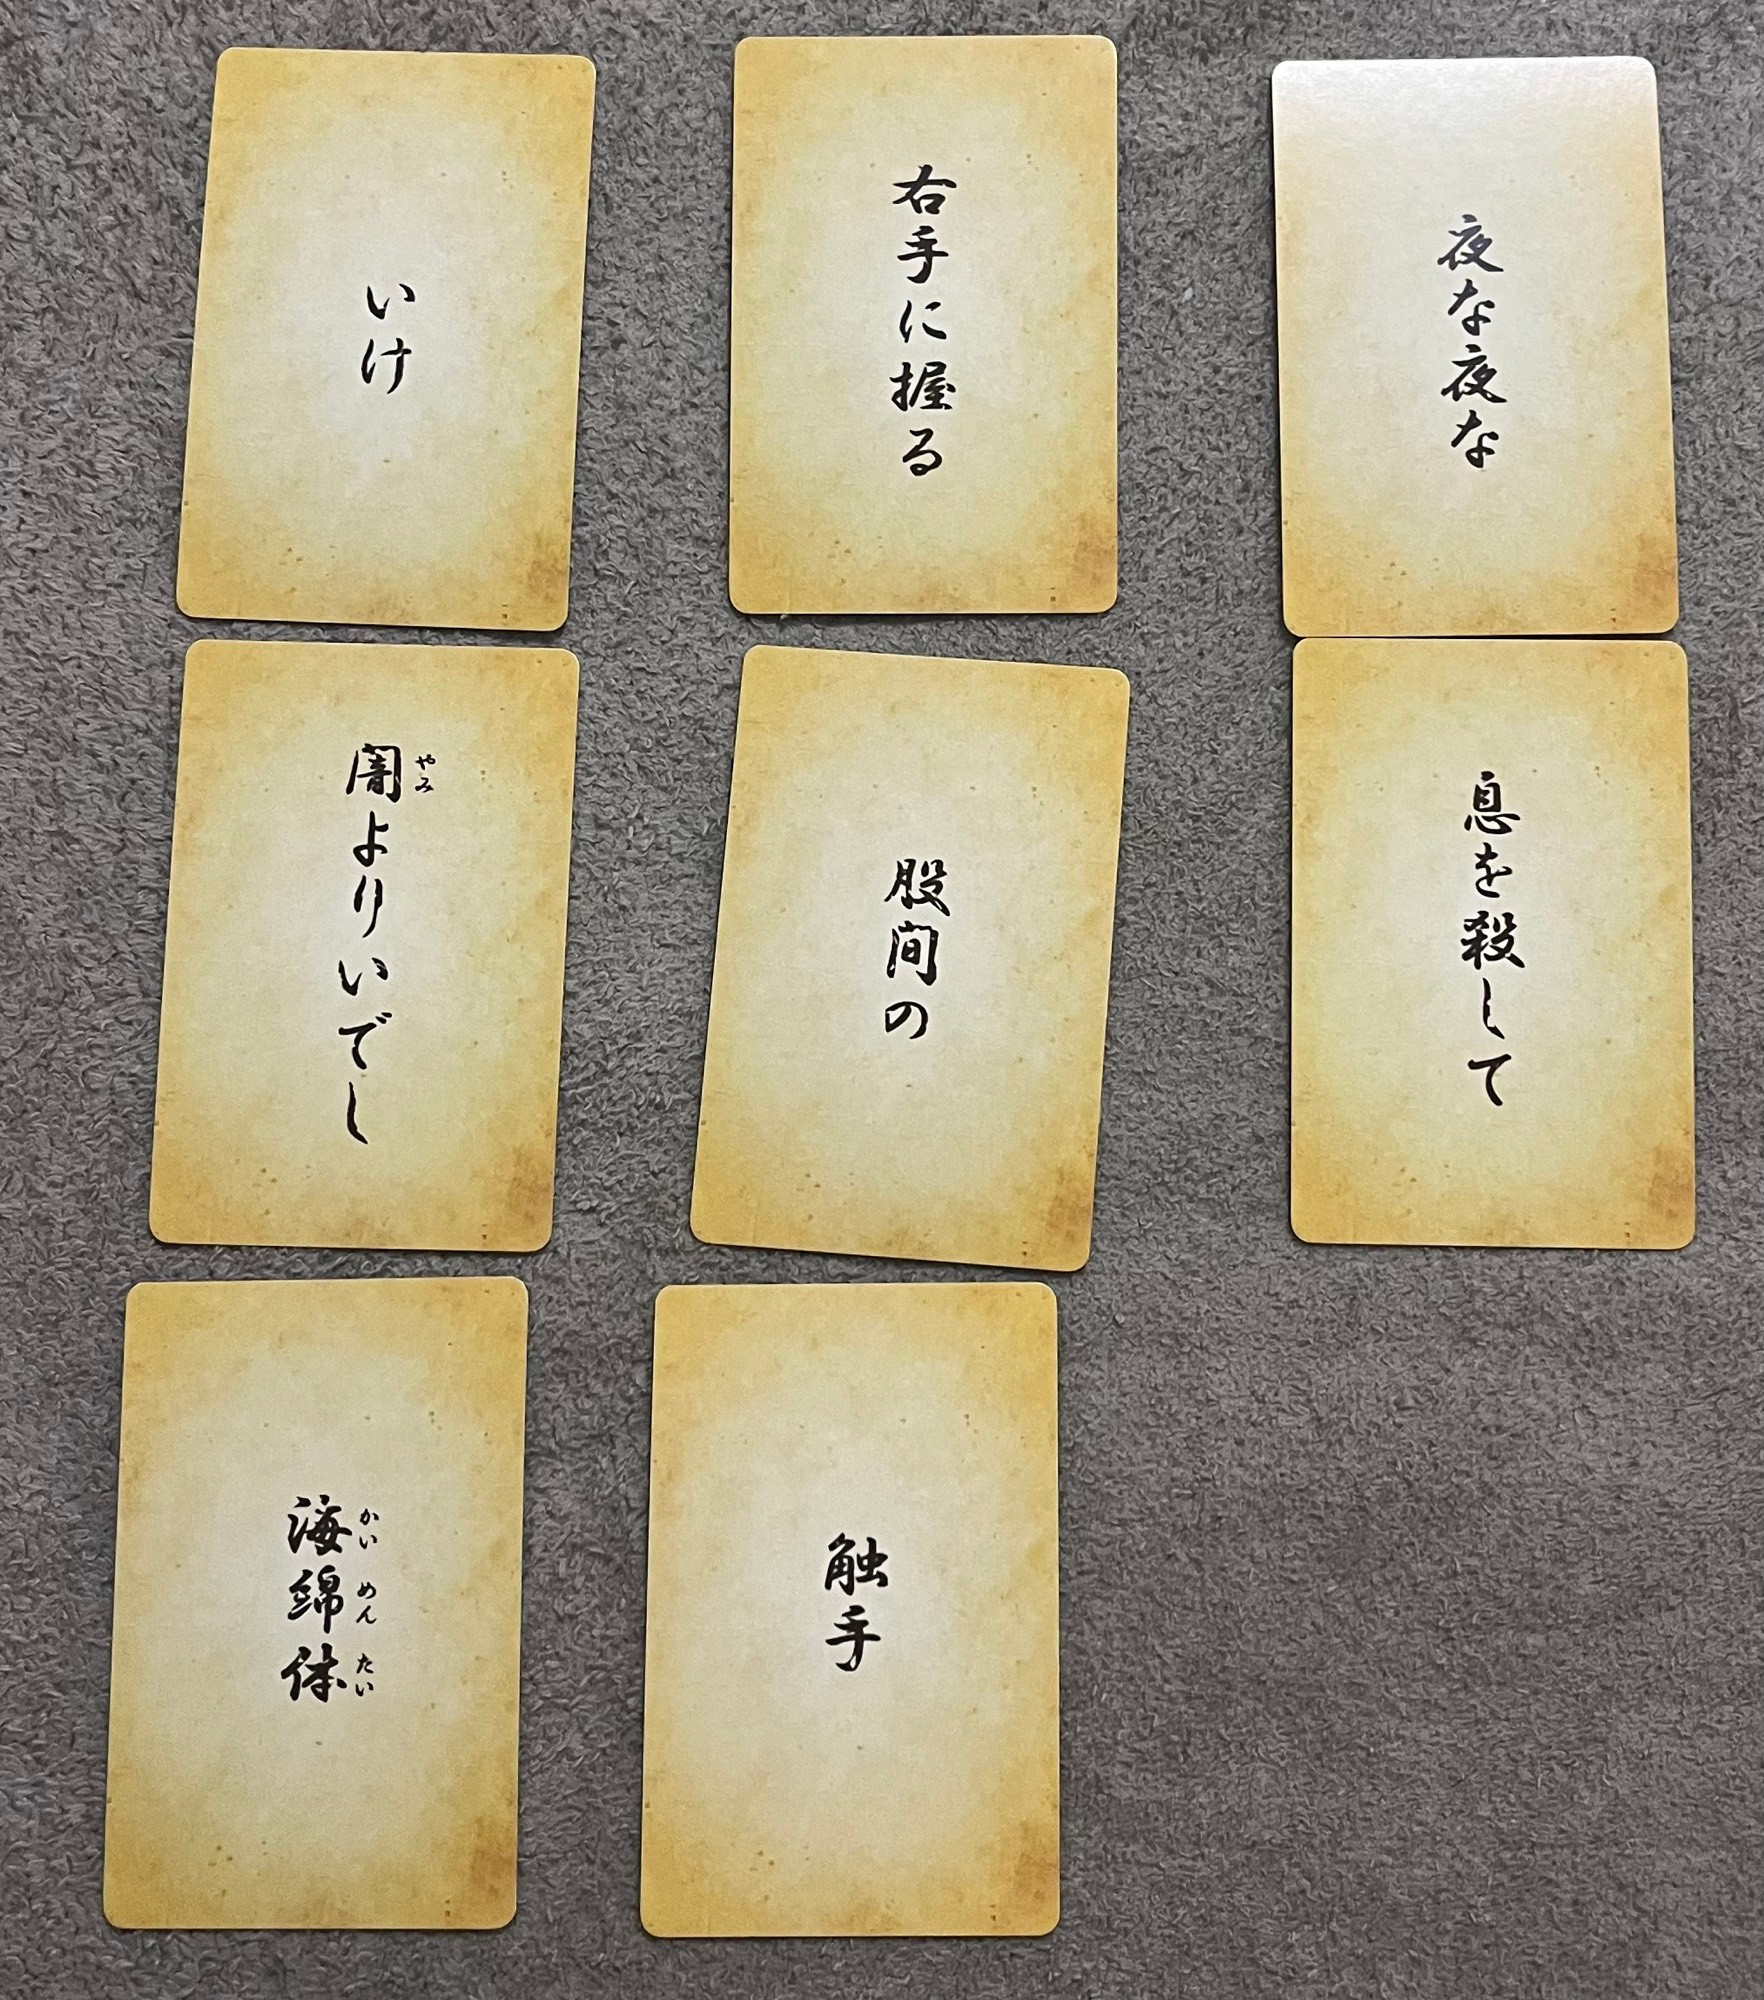 夜な夜な
息を殺して
右手に握る
股間の
触手
いけ
闇よりいでし
やみ
海綿体
かいめんたい